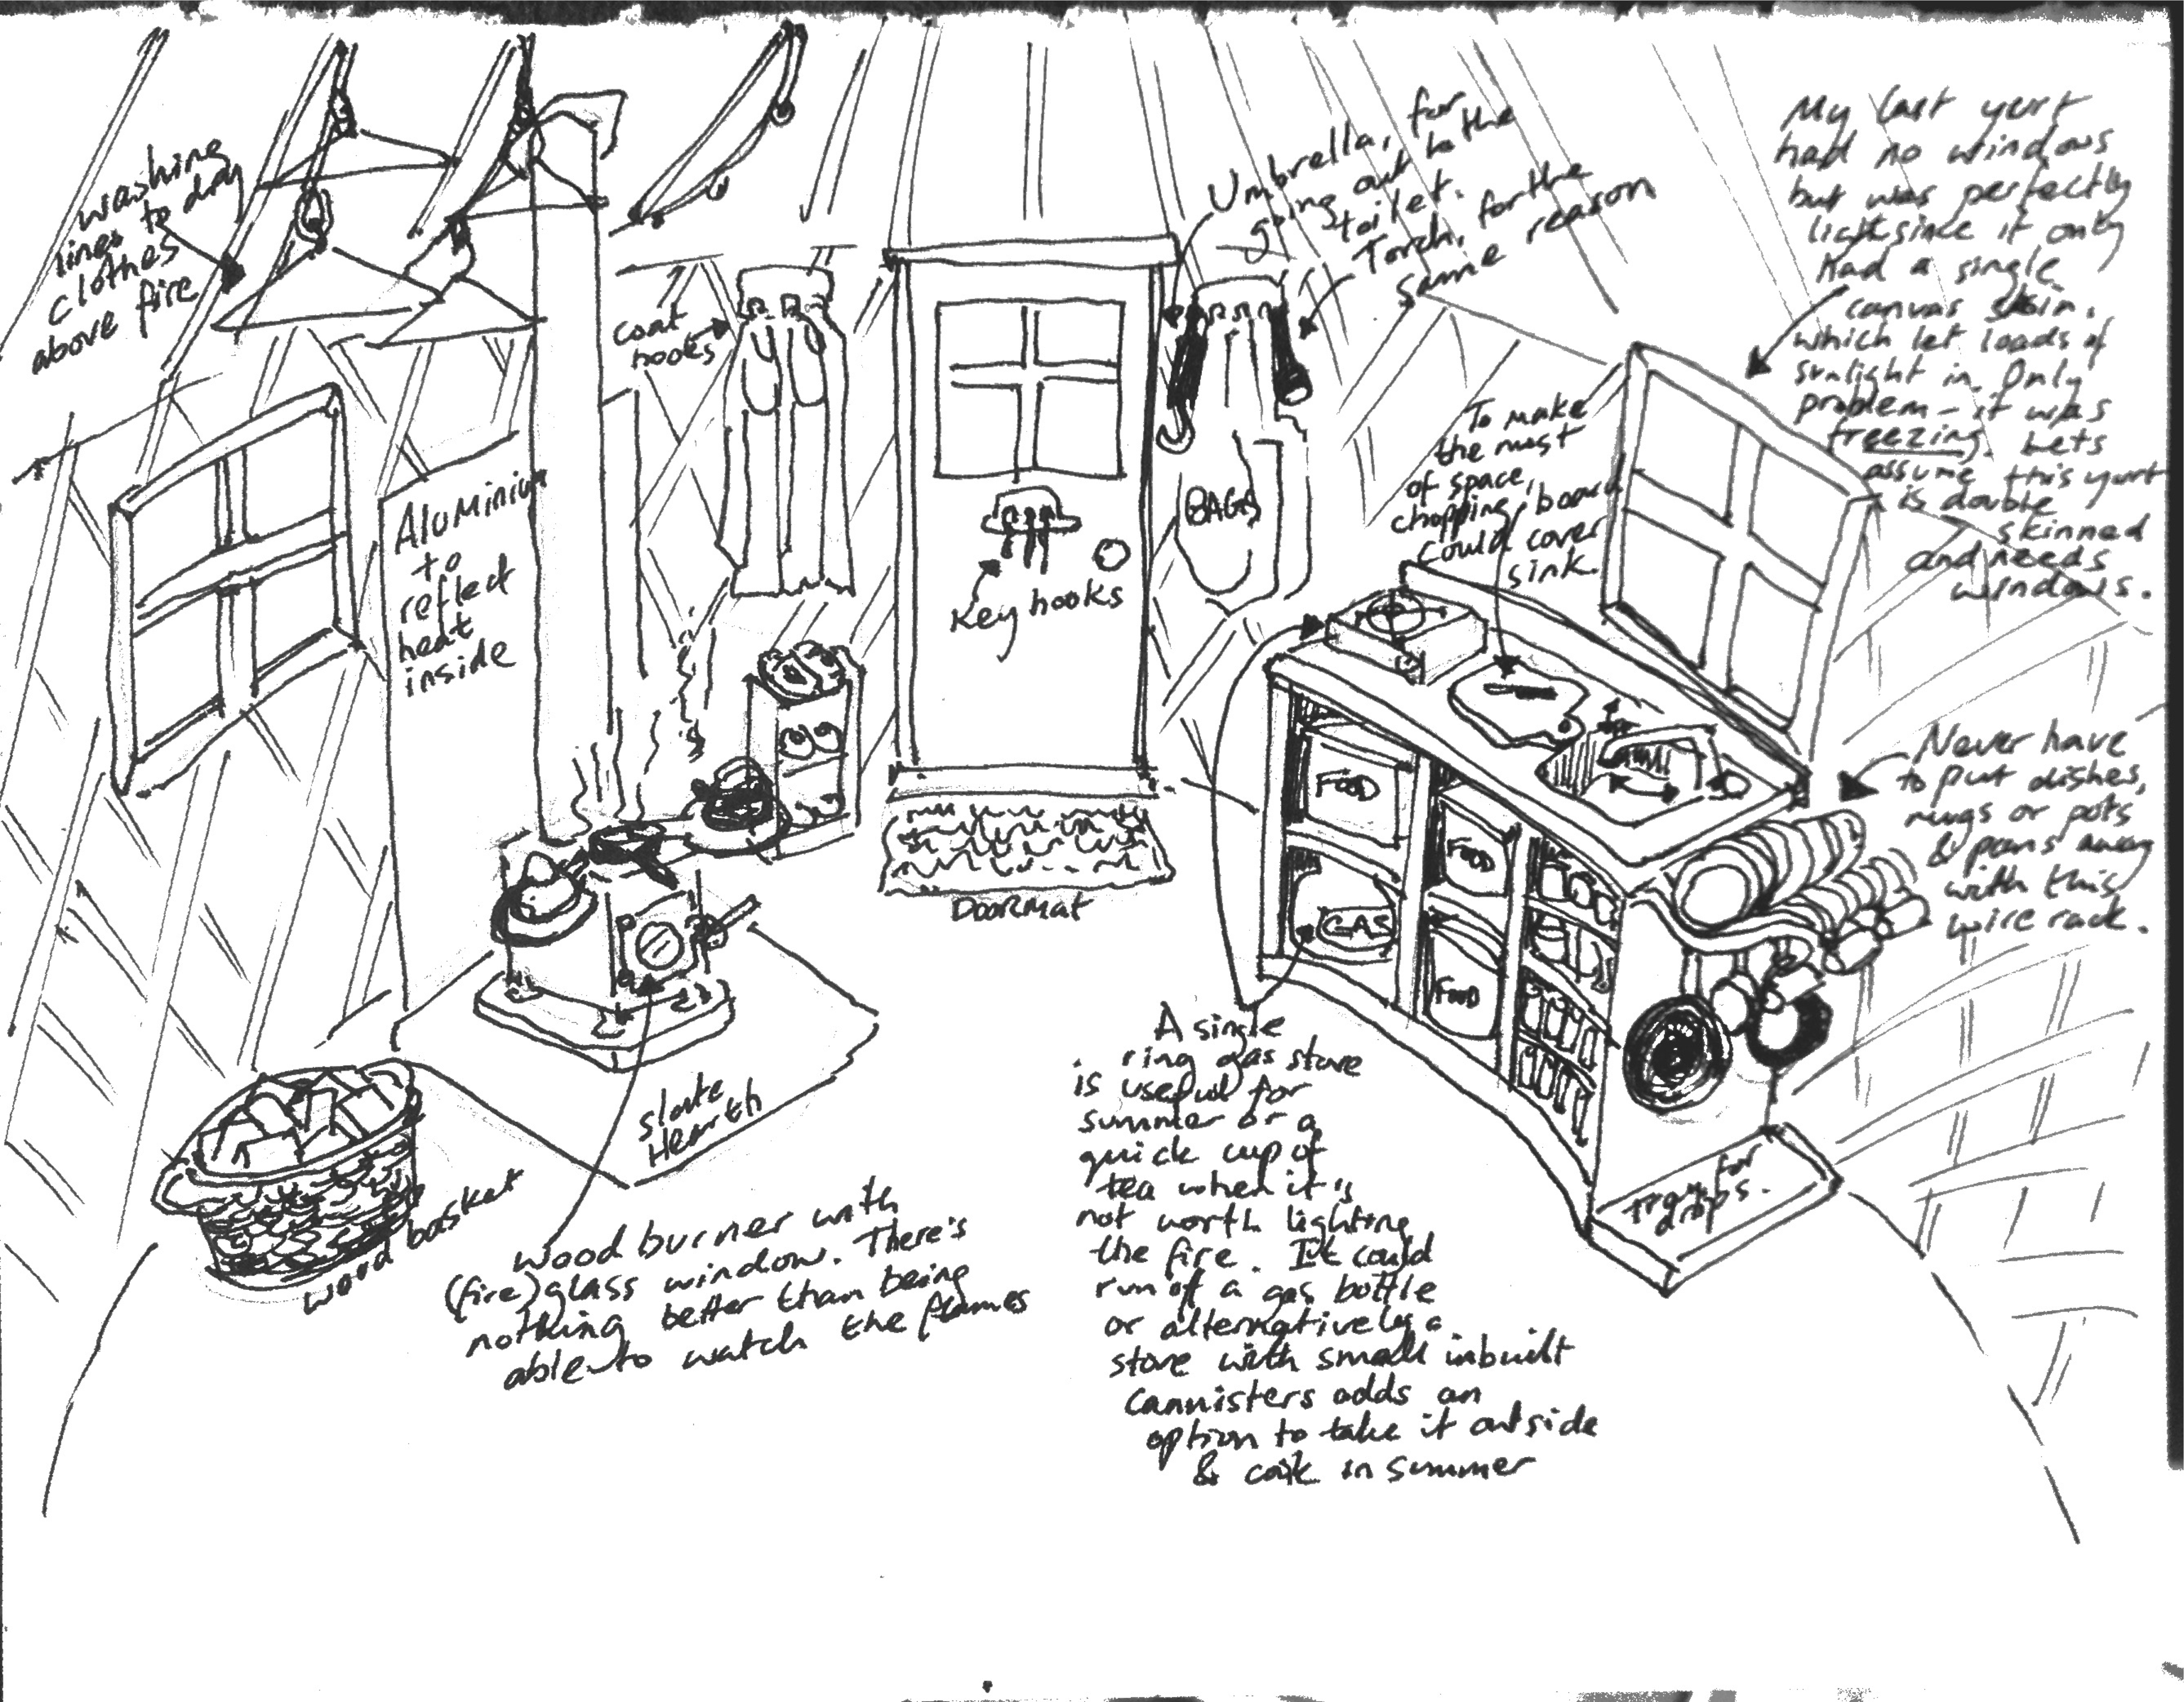 washing
lines to dry
clothes
above fire
coat
hooks
Umbrella, for
going out to the
toilet.
Torch, for the
same reason
My last yurt
had no windows
but was perfectly
light since it only
had a single
canvas skin.
which let loads of
sunlight in. Only
problem - it was
freezing. Lets
assume this yurt
is double
skinned
and needs
windows.
Aluminium
to
reflect
heat
inside
Key hooks
BAGS
To make
the most
of space,
chopping board
could cover
sink.
FOOD
FOOD
GAS
FOOD
Never have
to put dishes,
mugs or pots
& pans away
with this
wire rack.
DOORMAT
slate
Hearth
wood basket
wood burner with
(fire)glass window. There's
nothing better than being
able to watch the flames
A single
ring gas stove
is useful for
summer or a
quick cup of
tea when it is
not worth lighting
the fire. It could
run of a gas bottle
or alternatively a
stove with small inbuilt
cannisters adds an
option to take it outside
& cook in summer
Tray for
drops.